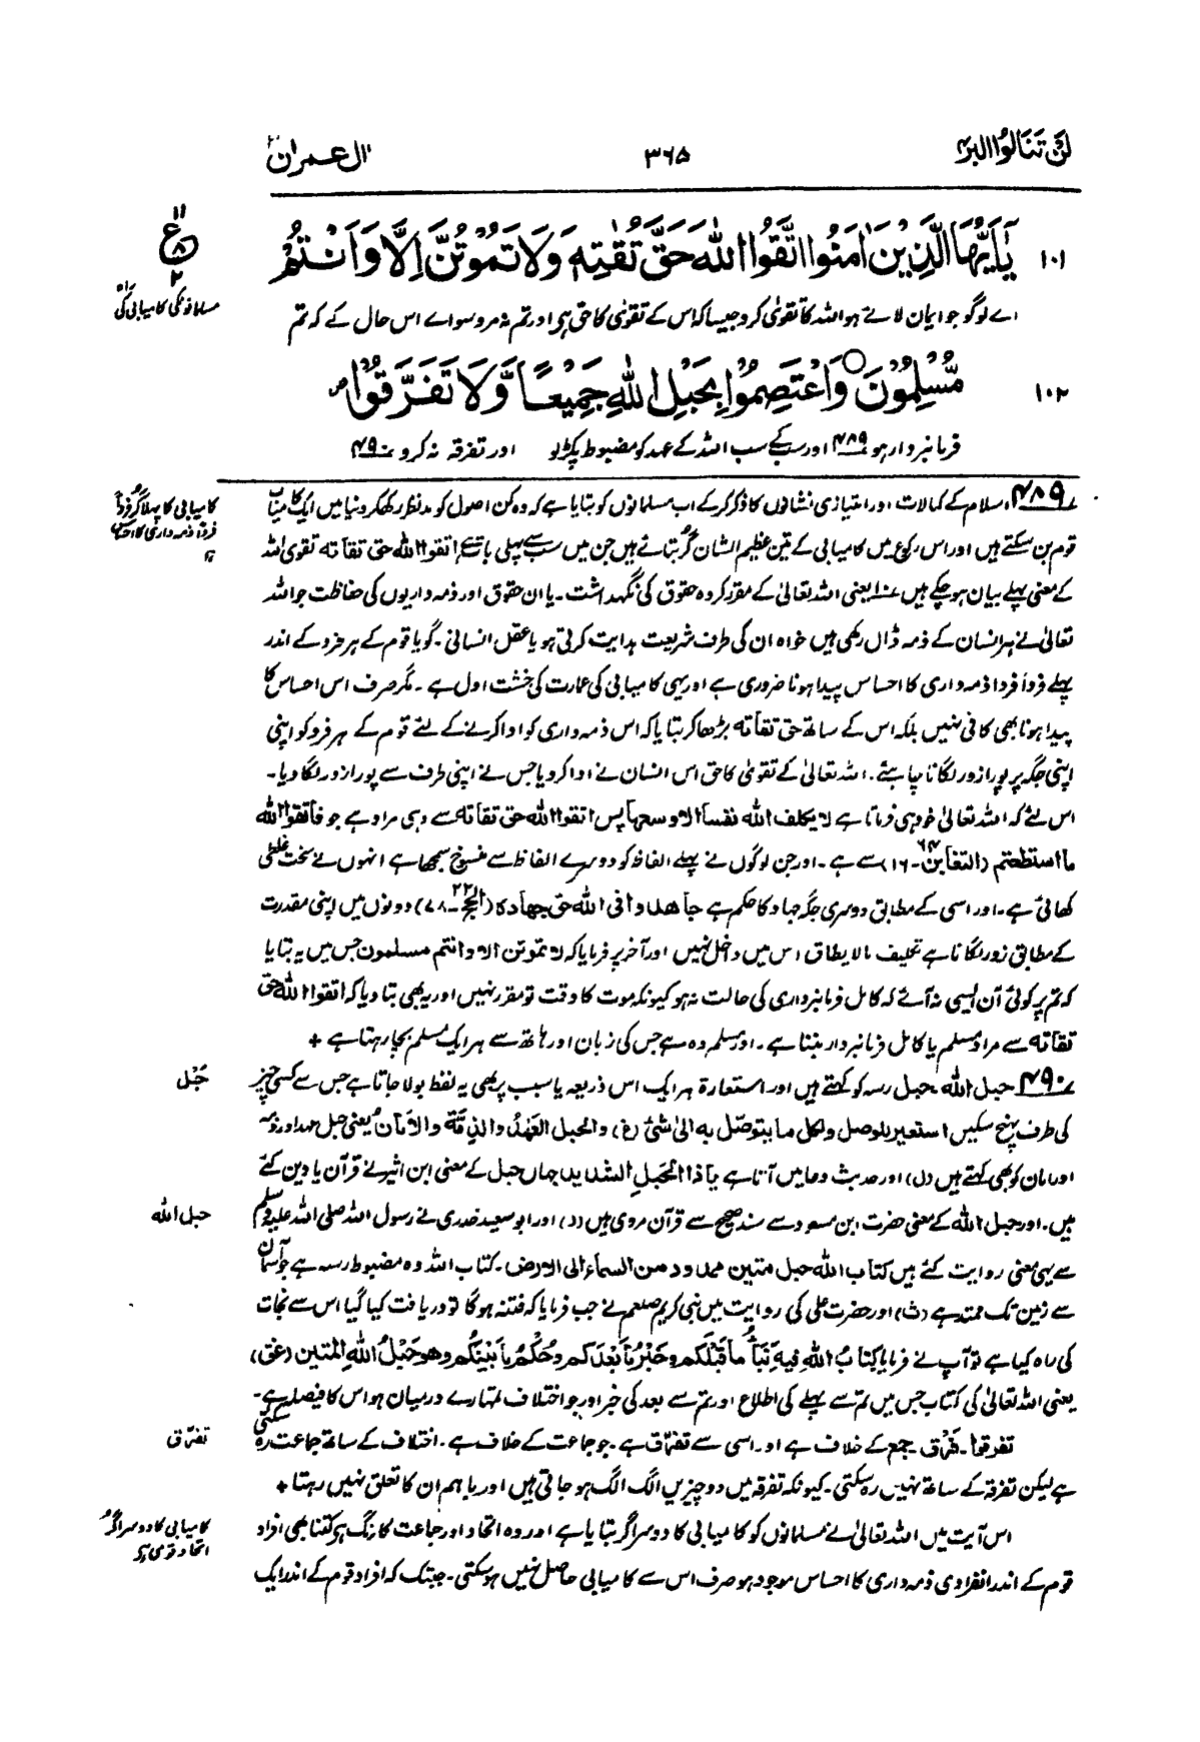 لن تنالوا البر
۳۶۵
اٰل عمران
۱۱
ع
۲
۱۰۱ یٰۤاَیُّهَا الَّذِیْنَ اٰمَنُوا اتَّقُوا اللّٰهَ حَقَّ تُقٰتِهٖ وَلَا تَمُوْتُنَّ اِلَّا وَاَنْتُمْ
مسلمانوں کی کامیابی کی راہ
اے لوگو جو ایمان لائے ہو اللہ کا تقویٰ کرو جیسا کہ اس کے تقویٰ کا حق ہے اور تم نہ مرو سوائے اس حال کے کہ تم
۱۰۲ مُّسْلِمُوْنَ ○ وَاعْتَصِمُوْا بِحَبْلِ اللّٰهِ جَمِیْعًا وَّلَا تَفَرَّقُوْا ص
فرمانبردار ہو ۴۸۹ اور سب کے سب اللہ کے عہد کو مضبوط پکڑ لو اور تفرقہ نہ کرو ۴۹۰
کامیابی کا پہلا گر فرداً
فرداً ذمہ داری کا احساس
ہے
۴۸۹ اسلام کے کمالات اور امتیازی نشانوں کا ذکر کرکے اب مسلمانوں کو بتایا ہے کہ وہ کن اصول کو مدنظر رکھ کر دنیا میں ایک کامیاب
قوم بن سکتے ہیں اور اس رکوع میں کامیابی کے تین عظیم الشان گر بتائے ہیں جن میں سب سے پہلی بات ہے اتقوا اللہ حق تقاتہ تقوی اللہ
کے معنی پہلے بیان ہوچکے ہیں ۱۰ یعنی اللہ تعالیٰ کے مقرر کردہ حقوق کی نگہداشت۔ یا ان حقوق اور ذمہ داریوں کی حفاظت جو اللہ
تعالیٰ نے ہر انسان کے ذمہ ڈال رکھی ہیں خواہ ان کی طرف شریعت ہدایت کرتی ہو یا عقل انسانی۔ گویا قوم کے ہر فرد کے اندر
پہلے فرداً فرداً ذمہ داری کا احساس پیدا ہونا ضروری ہے اور یہی کامیابی کی عمارت کی خشت اول ہے۔ مگر صرف اس احساس کا
پیدا ہونا بھی کافی نہیں بلکہ اس کے ساتھ حق تقاتہ بڑھا کر بتایا کہ اس ذمہ داری کو ادا کرنے کے لئے قوم کے ہر فرد کو اپنی
اپنی جگہ پر پورا زور لگانا چاہئے۔ اللہ تعالیٰ کے تقویٰ کا حق اس انسان نے ادا کردیا جس نے اپنی طرف سے پورا زور لگا دیا۔
اس لئے کہ اللہ تعالیٰ خود ہی فرماتا ہے لا یکلف اللہ نفسا الا وسعہا پس اتقوا اللہ حق تقاتہ سے وہی مراد ہے جو فاتقوا اللہ
ما استطعتم (التغابن ۶۴۔۱۶) سے ہے۔ اور جن لوگوں نے پہلے الفاظ کو دوسرے الفاظ سے منسوخ سمجھا ہے انہوں نے سخت غلطی
کھائی ہے۔ اور اسی کے مطابق دوسری جگہ جہاد کا حکم ہے جاھدوا فی اللہ حق جھادہ (الحج ۲۲۔۷۸) دونوں میں اپنی مقدرت
کے مطابق زور لگانا ہے تکلیف مالا یطاق اس میں داخل نہیں اور آخر پر فرمایا کہ لا تموتن الا وانتم مسلمون جس میں یہ بتایا
کہ تم پر کوئی آن ایسی نہ آئے کہ کامل فرمانبرداری کی حالت نہ ہو کیونکہ موت کا وقت تو مقرر نہیں اور یہ بھی بتا دیا کہ اتقوا اللہ حق
تقاتہ سے مراد مسلم یا کامل فرمانبردار بننا ہے۔ اور مسلم وہ ہے جس کی زبان اور ہاتھ سے ہر ایک مسلم بچا رہتا ہے +
حَبْل
۴۹۰ حبل اللہ حبل رسہ کو کہتے ہیں اور استعارۃ ہر ایک اس ذریعہ یا سبب پر بھی یہ لفظ بولا جاتا ہے جس سے کسی چیز
کی طرف پہنچ سکیں استعیر للوصل ولکل ما یتوصل بہ الی شئ (غ) والحبل العَهْدُ والذِّمَّة والاَمان یعنی حبل عہد اور ذمہ
اور امان کو بھی کہتے ہیں (ل) اور حدیث دعا میں آتا ہے یا ذا الحَبلِ الشدید جہاں حبل کے معنی ابن اثیر نے قرآن یا دین کئے
حبل اللہ
ہیں۔ اور حبل اللہ کے معنی حضرت ابن مسعود سے سند صحیح سے قرآن مروی ہیں (د) اور ابو سعید خدری نے رسول اللہ صلی اللہ علیہ وسلم
سے یہی معنی روایت کئے ہیں کتاب اللہ حبل متین ممدود من السماء الی الارض۔ کتاب اللہ وہ مضبوط رسہ ہے جو آسمان
سے زمین تک ممتد ہے (ث) اور حضرت علی کی روایت میں نبی کریم صلعم نے جب فرمایا کہ فتنہ ہوگا تو دریافت کیا گیا اس سے نجات
کی راہ کیا ہے تو آپ نے فرمایا کِتابُ اللهِ فِیهِ نَبَأُ ما قَبْلَکم وخَبَرُ ما بَعدَکم وحُکْمُ ما بَیْنَکم وهو حَبْلُ اللهِ المتین (عق)
یعنی اللہ تعالیٰ کی کتاب جس میں تم سے پہلے کی اطلاع اور تم سے بعد کی خبر اور جو اختلاف تمہارے درمیان ہو اس کا فیصلہ ہے۔
تفرّق
تفرقوا۔ فرق جمع کے خلاف ہے اور اسی سے تفرّق ہے۔ جو جماعت کے خلاف ہے۔ اختلاف کے ساتھ جماعت رہ سکتی
ہے لیکن تفرقہ کے ساتھ نہیں رہ سکتی۔ کیونکہ تفرقہ میں دو چیزیں الگ الگ ہو جاتی ہیں اور باہم ان کا تعلق نہیں رہتا +
کامیابی کا دوسرا گر
اتحاد قومی ہے
اس آیت میں اللہ تعالیٰ نے مسلمانوں کو کامیابی کا دوسرا گر بتایا ہے اور وہ اتحاد اور جماعت کا رنگ ہے کتنا بھی افراد
قوم کے اندر انفرادی ذمہ داری کا احساس موجود ہو صرف اس سے کامیابی حاصل نہیں ہو سکتی۔ جبتک کہ افراد قوم کے اندر ایک